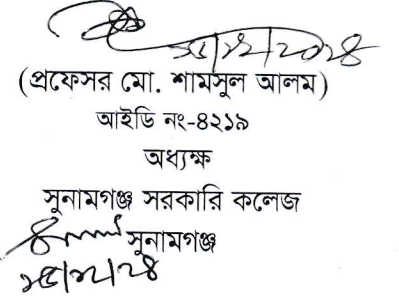 ২৫/১২/২০২৪
(প্রফেসর মো. শামসুল আলম)
আইডি নং-৪২১৯
অধ্যক্ষ
সুনামগঞ্জ সরকারি কলেজ
সুনামগঞ্জ
২৫/১২/২৪